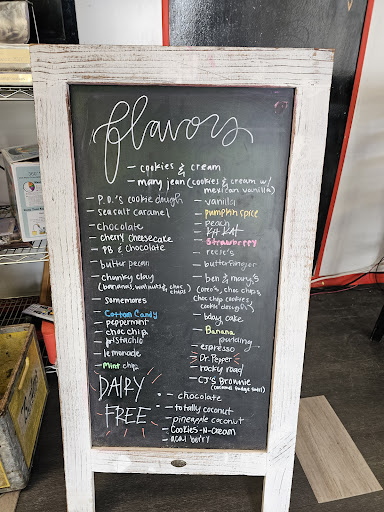 flavors
- cookies & cream
- mary jean (cookies & cream w/
mexican vanilla)
- P.D.'s cookie dough
- sea salt caramel
- chocolate
- cherry cheesecake
- PB & chocolate
- butter pecan
- chunky clay
(bananas, walnuts, & choc
chips)
- somemores
- Cotton Candy
- peppermint
- choc chip
- pistachio
- lemonade
- Mint chip
- vanilla
- pumpkin spice
- peach
- Kit Kat
- Strawberry
- reese's
- butterfinger
- ben & mary's
(oreo's, choc chips,
choc chip cookies,
cookie dough)
- bday cake
- Banana
pudding
- espresso
- Dr. Pepper
- rocky road
- CJ's Brownie
DAIRY
FREE
- chocolate
- totally coconut
- pineapple coconut
- Cookies-N-Cream
- acai berry